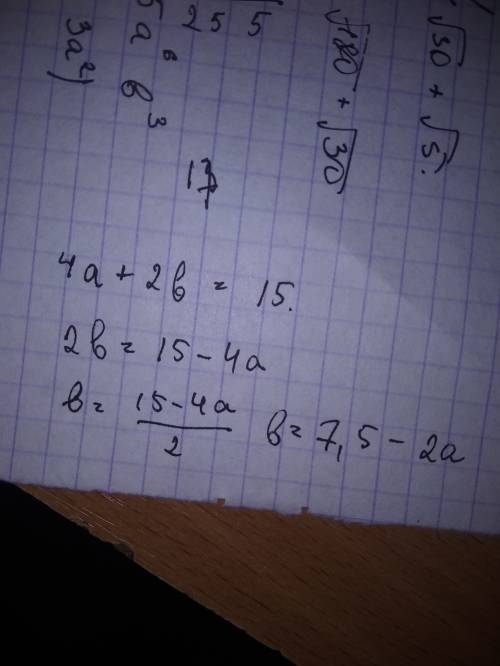 √30 + √5.
√180 + √30
2 5 5
5 a⁶ b³
3a²)
17
4a + 2b = 15.
2b = 15 - 4a
b = (15 - 4a)/2 b = 7,5 - 2a